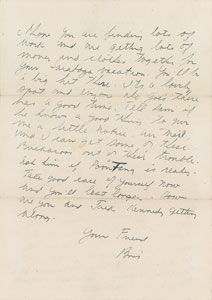 I hope you are finding lots of
work and are getting lots of
money and clothes together for
your Saratoga vacation. You'll be
a big hit there. It's a lovely
spot and anyone who goes there
has a good time. Tell Sam if
he knows a good thing to put
me a little notice in mail
and I can get some of these
out of their trouble.
Ask him if is ready.
Take good care of yourself now
and you'll last longer. How
are you and Fred Kennedy getting
along.
Your Friend